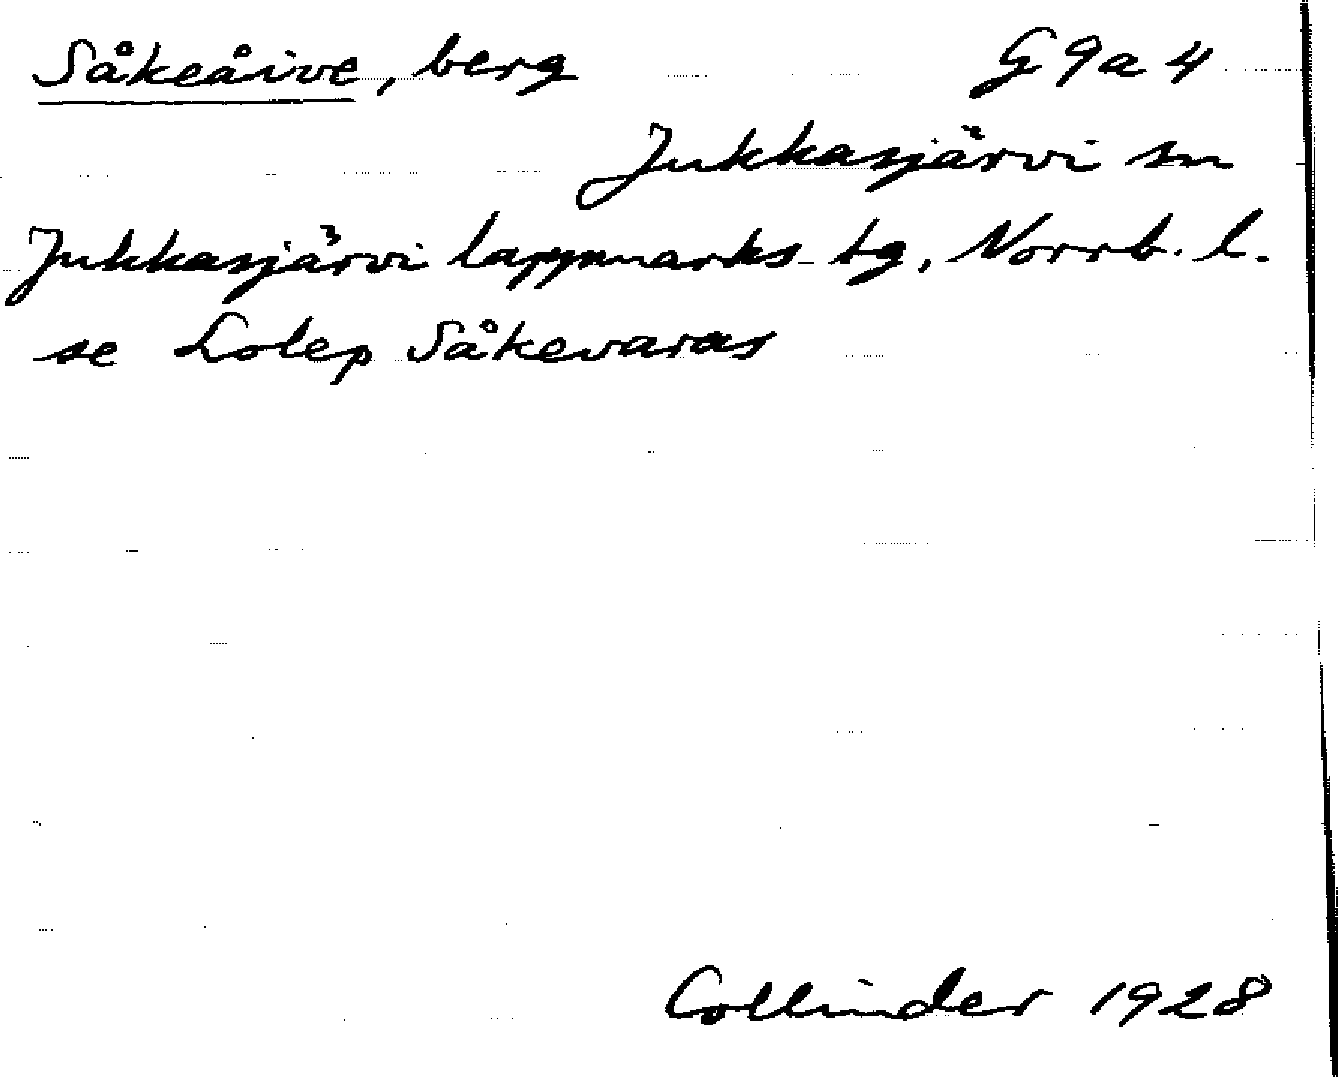 Såkeåive, berg G9a4
Jukkasjärvi sn
Jukkasjärvi lappmarks tg, Norrb. l.
se Lolep Såkevaras
Collinder 1928